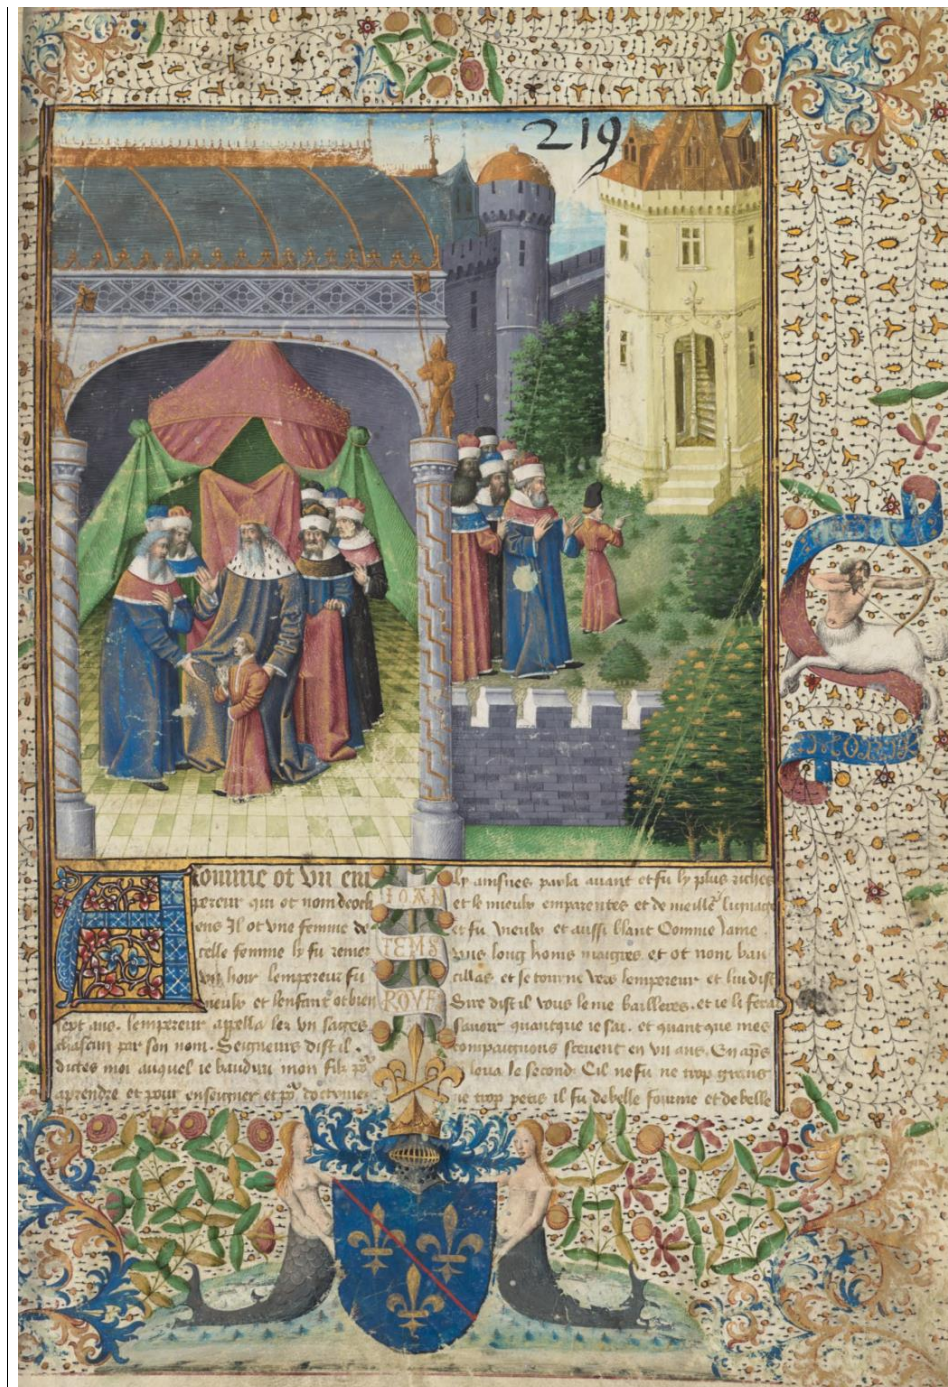 219
Romme ot vn em
pereur qui ot nom deocli
ens Il ot vne femme de
celle femme ly fu remes
vng hoir lempereur fu
vieulx et lenfant ot bien
sept ans. lempereur appella les vii sages
chascun par son nom. Seigneurs dist il.
dictes moi auquel ie bauldrai mon filz
aprendre et pour enseigner et doctriner
IOAN
TEMS
ROVE
ly ainsnes parla auant et fu ly plus riches
et le mieulx emparentes et de meille lignage
et fu vieulx et aussi blanc Comme laine.
long homs maigres et ot nom ban
cillas. et se tourne vers lempereur et lui dist
Sire dist il vous le me bailleres. et ie le ferai
sauoir quantque ie scai. et quant que mes
compaignons sceuent en vii ans. En apres
loua le second. Cil ne fu ne trop grans
ne trop petis il fu de belle fourme et de belle